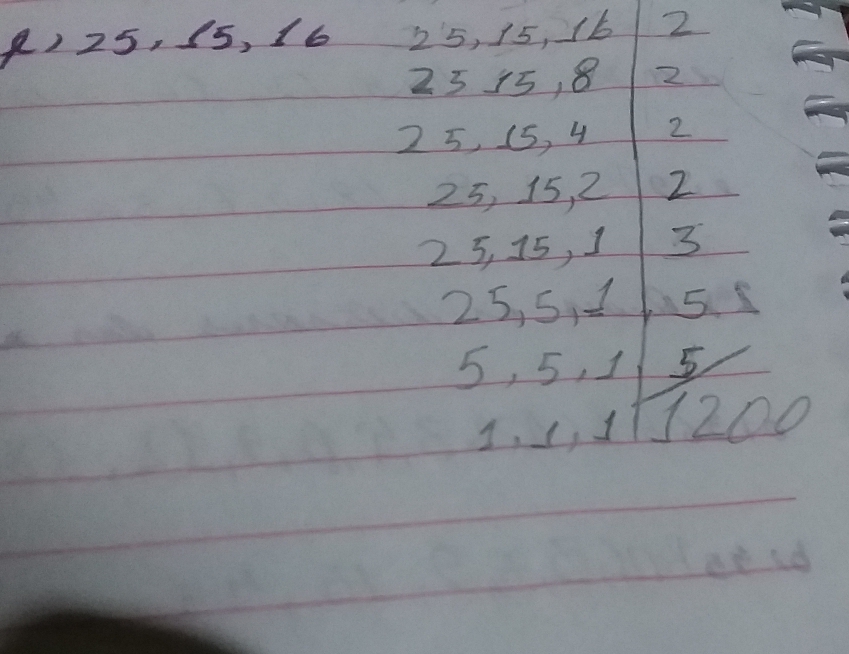 25, 15, 16 25, 15, 16 | 2
25 15, 8 | 2
25, 15, 4 | 2
25, 15, 2 | 2
25, 15, 1 | 3
25, 5, 1 | 5
5, 5, 1 | 5
1, 1, 1 | 1200